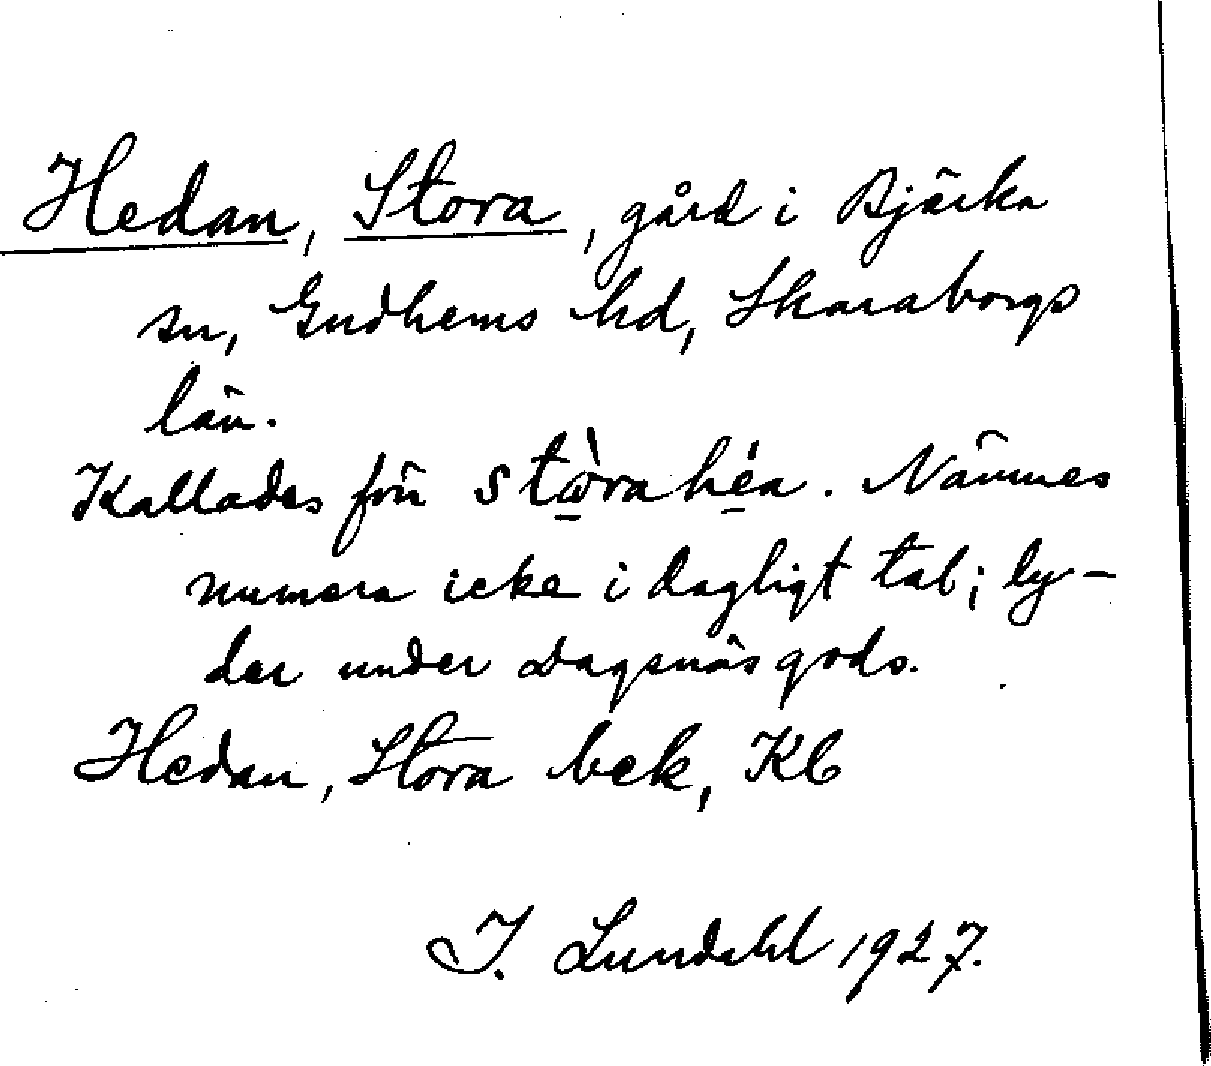 Hedan, Stora, gård i Bjärka
sn, Gudhems hd, Skaraborgs
län.
Kallades förr stὼ̱rahé̱a. Nämnes
numera icke i dagligt tal; ly-
der under Dagsnäs gods.
Hedan, Stora bek, Kb
I. Lundahl 1927.